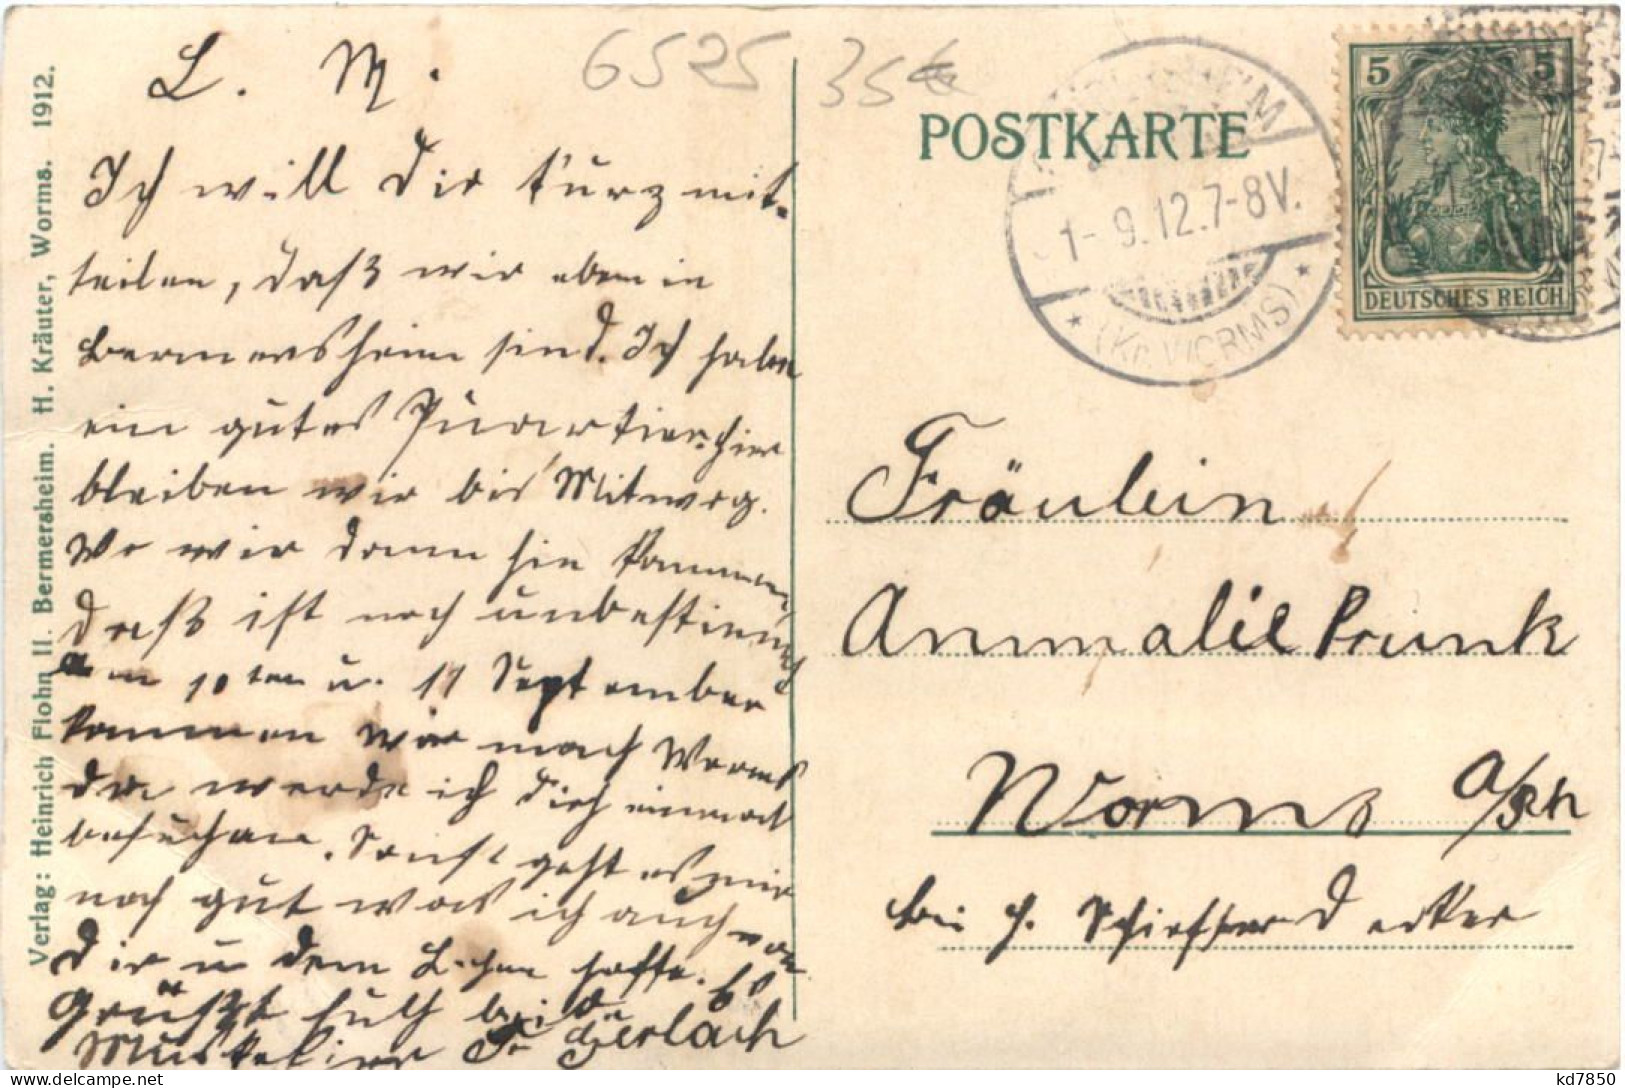 L. M.
Ich will Dir kurz mit-
teilen, daß wir eben in
Bermersheim sind. Ich habe
ein gutes Quartier. hier
bleiben wir bis Mitwog.
Wo wir dann hin kommen
daß ist noch unbestimmt
am 10ten u. 11 September
kommen wir nach Worms
da werde ich dich einmal
besuchen. Sonst geht es mir
noch gut was ich auch von
Dir u dem hoffe. Es
Grüßt Euch beide
Musketier Fr Gerlach
6525 35€
POSTKARTE
1-9.12.7-8V.
* (Kr. WORMS) *
5 5
DEUTSCHES REICH
Fräulein
Annmalie Prunk
Worms a/Rh
bei H.
Verlag: Heinrich Flohn II. Bermersheim. H. Kräuter, Worms. 1912.
kd7850